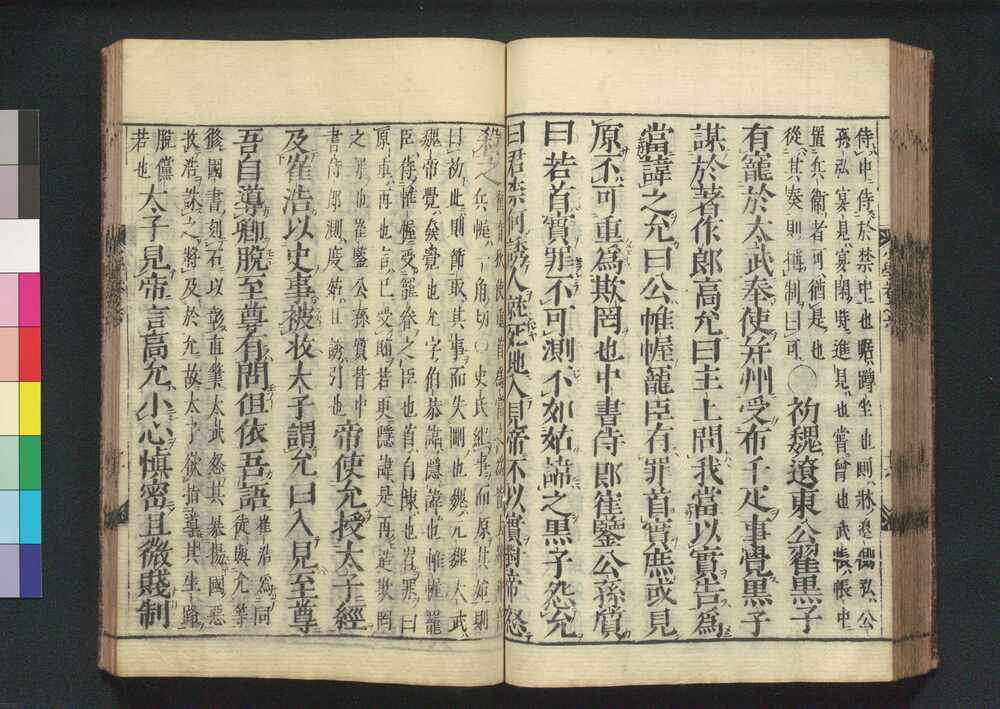 侍中侍於禁中也踞蹲坐也則牀邊側弘公
孫弘宴見宴閒時進見也嘗曾也武帳帳中
置兵衛者可猶是也
從其奏則傅制曰可
○初魏遼東公翟黑子
有寵於太武奉使并州受布千疋事覺黑子
謀於著作郎高允曰主上問我當以實告為
當諱之允曰公帷幄寵臣有罪首實庶或見
原不可重為欺罔也中書侍郎崔鑒公孫質
曰若首實罪不可測不如姑諱之黑子怨允
曰君柰何誘人就死地入見帝不以實對帝怒
殺之
兵幄乙角切○史氏紀事而原其始則
曰初此則節取其事而失刪也魏元魏太武
魏帝覺發覺也允字伯恭諱隱諱也帷幄寵
臣侍帷幄受寵眷之臣也首自陳也宥罪曰
原重再也言已受賄若更隱諱是再造欺罔
之罪也崔鑒公孫質皆中
書侍郎測度姑且誘引也
帝使允授太子經
及崔浩以史事被收太子謂允曰入見至尊
吾自導卿脫至尊有問但依吾語
崔浩為同
徒與允等
修國書刻石以彰直筆太武怒其暴揚國惡
收浩誅之將及於允故太子欲指導其生路
脫儻
若也
太子見帝言高允小心慎密且微賤制